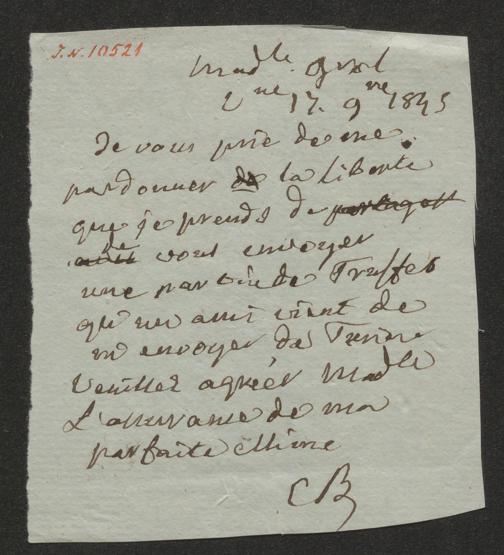 J.N. 10521
Mad^lle
V^ne 17. 9^re 1845
Je vous prie de me
pardonner de la liberte
que je prends de partager
vous envoyer
une partie de Truffes
qu'un ami vient de
m'envoyer de Turin
veuillez agréer Mad^lle
L'assurance de ma
parfaite estime
CB